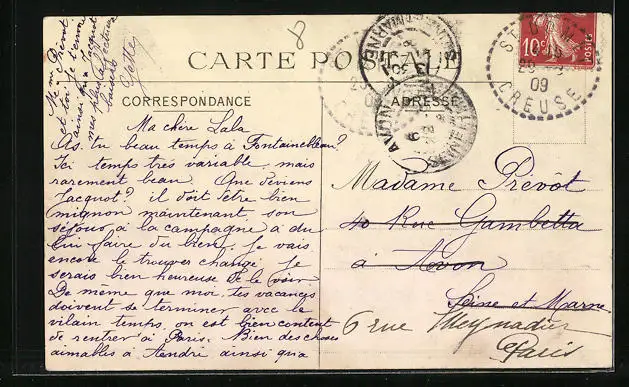 8
CARTE POSTALE
CORRESPONDANCE
ADRESSE
10c
POSTES
ST
29
09
CREUSE
AVON
SEINE-ET-MARNE
Ma chère Lala
As-tu beau temps à Fontainebleau?
Ici temps très variable, mais
rarement beau. Que deviens
Jacquot? il doit être bien
mignon maintenant, son
séjour à la campagne a du
lui faire du bien. Je vais
encore le trouver changé. Je
serais bien heureuse de le voir
De même que moi, tes vacances
doivent se terminer avec le
vilain temps, on est bien content
de rentrer à Paris. Bien des choses
aimables à André ainsi qu'à
Mme Prévot
et toi je t'envoie
ainsi qu'à Jacquot
mes plus affectueux
baisers
Madame Prévôt
40 Rue Gambetta
à Avon
Seine et Marne
6 rue Meynadier
Paris